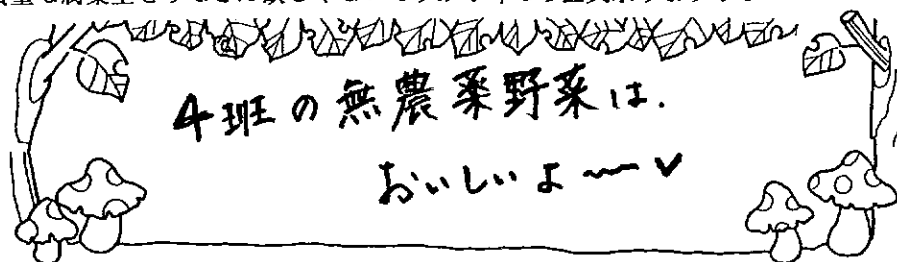 4班の無農薬野菜は.
おいしいよ〜〜✓